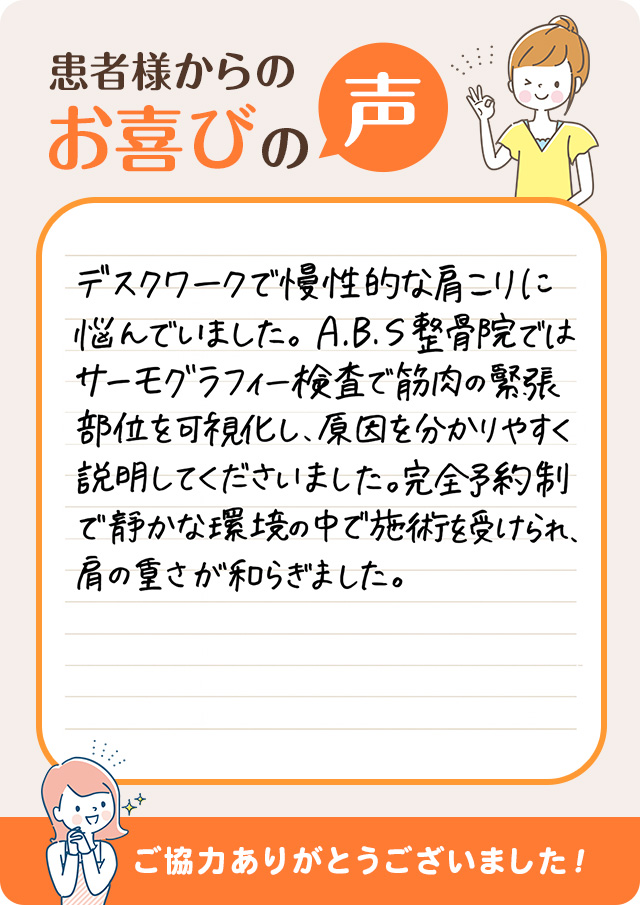 患者様からの
お喜びの声
デスクワークで慢性的な肩こりに
悩んでいました。A.B.S整骨院では
サーモグラフィー検査で筋肉の緊張
部位を可視化し、原因を分かりやすく
説明してくださいました。完全予約制
で静かな環境の中で施術を受けられ、
肩の重さが和らぎました。
ご協力ありがとうございました！